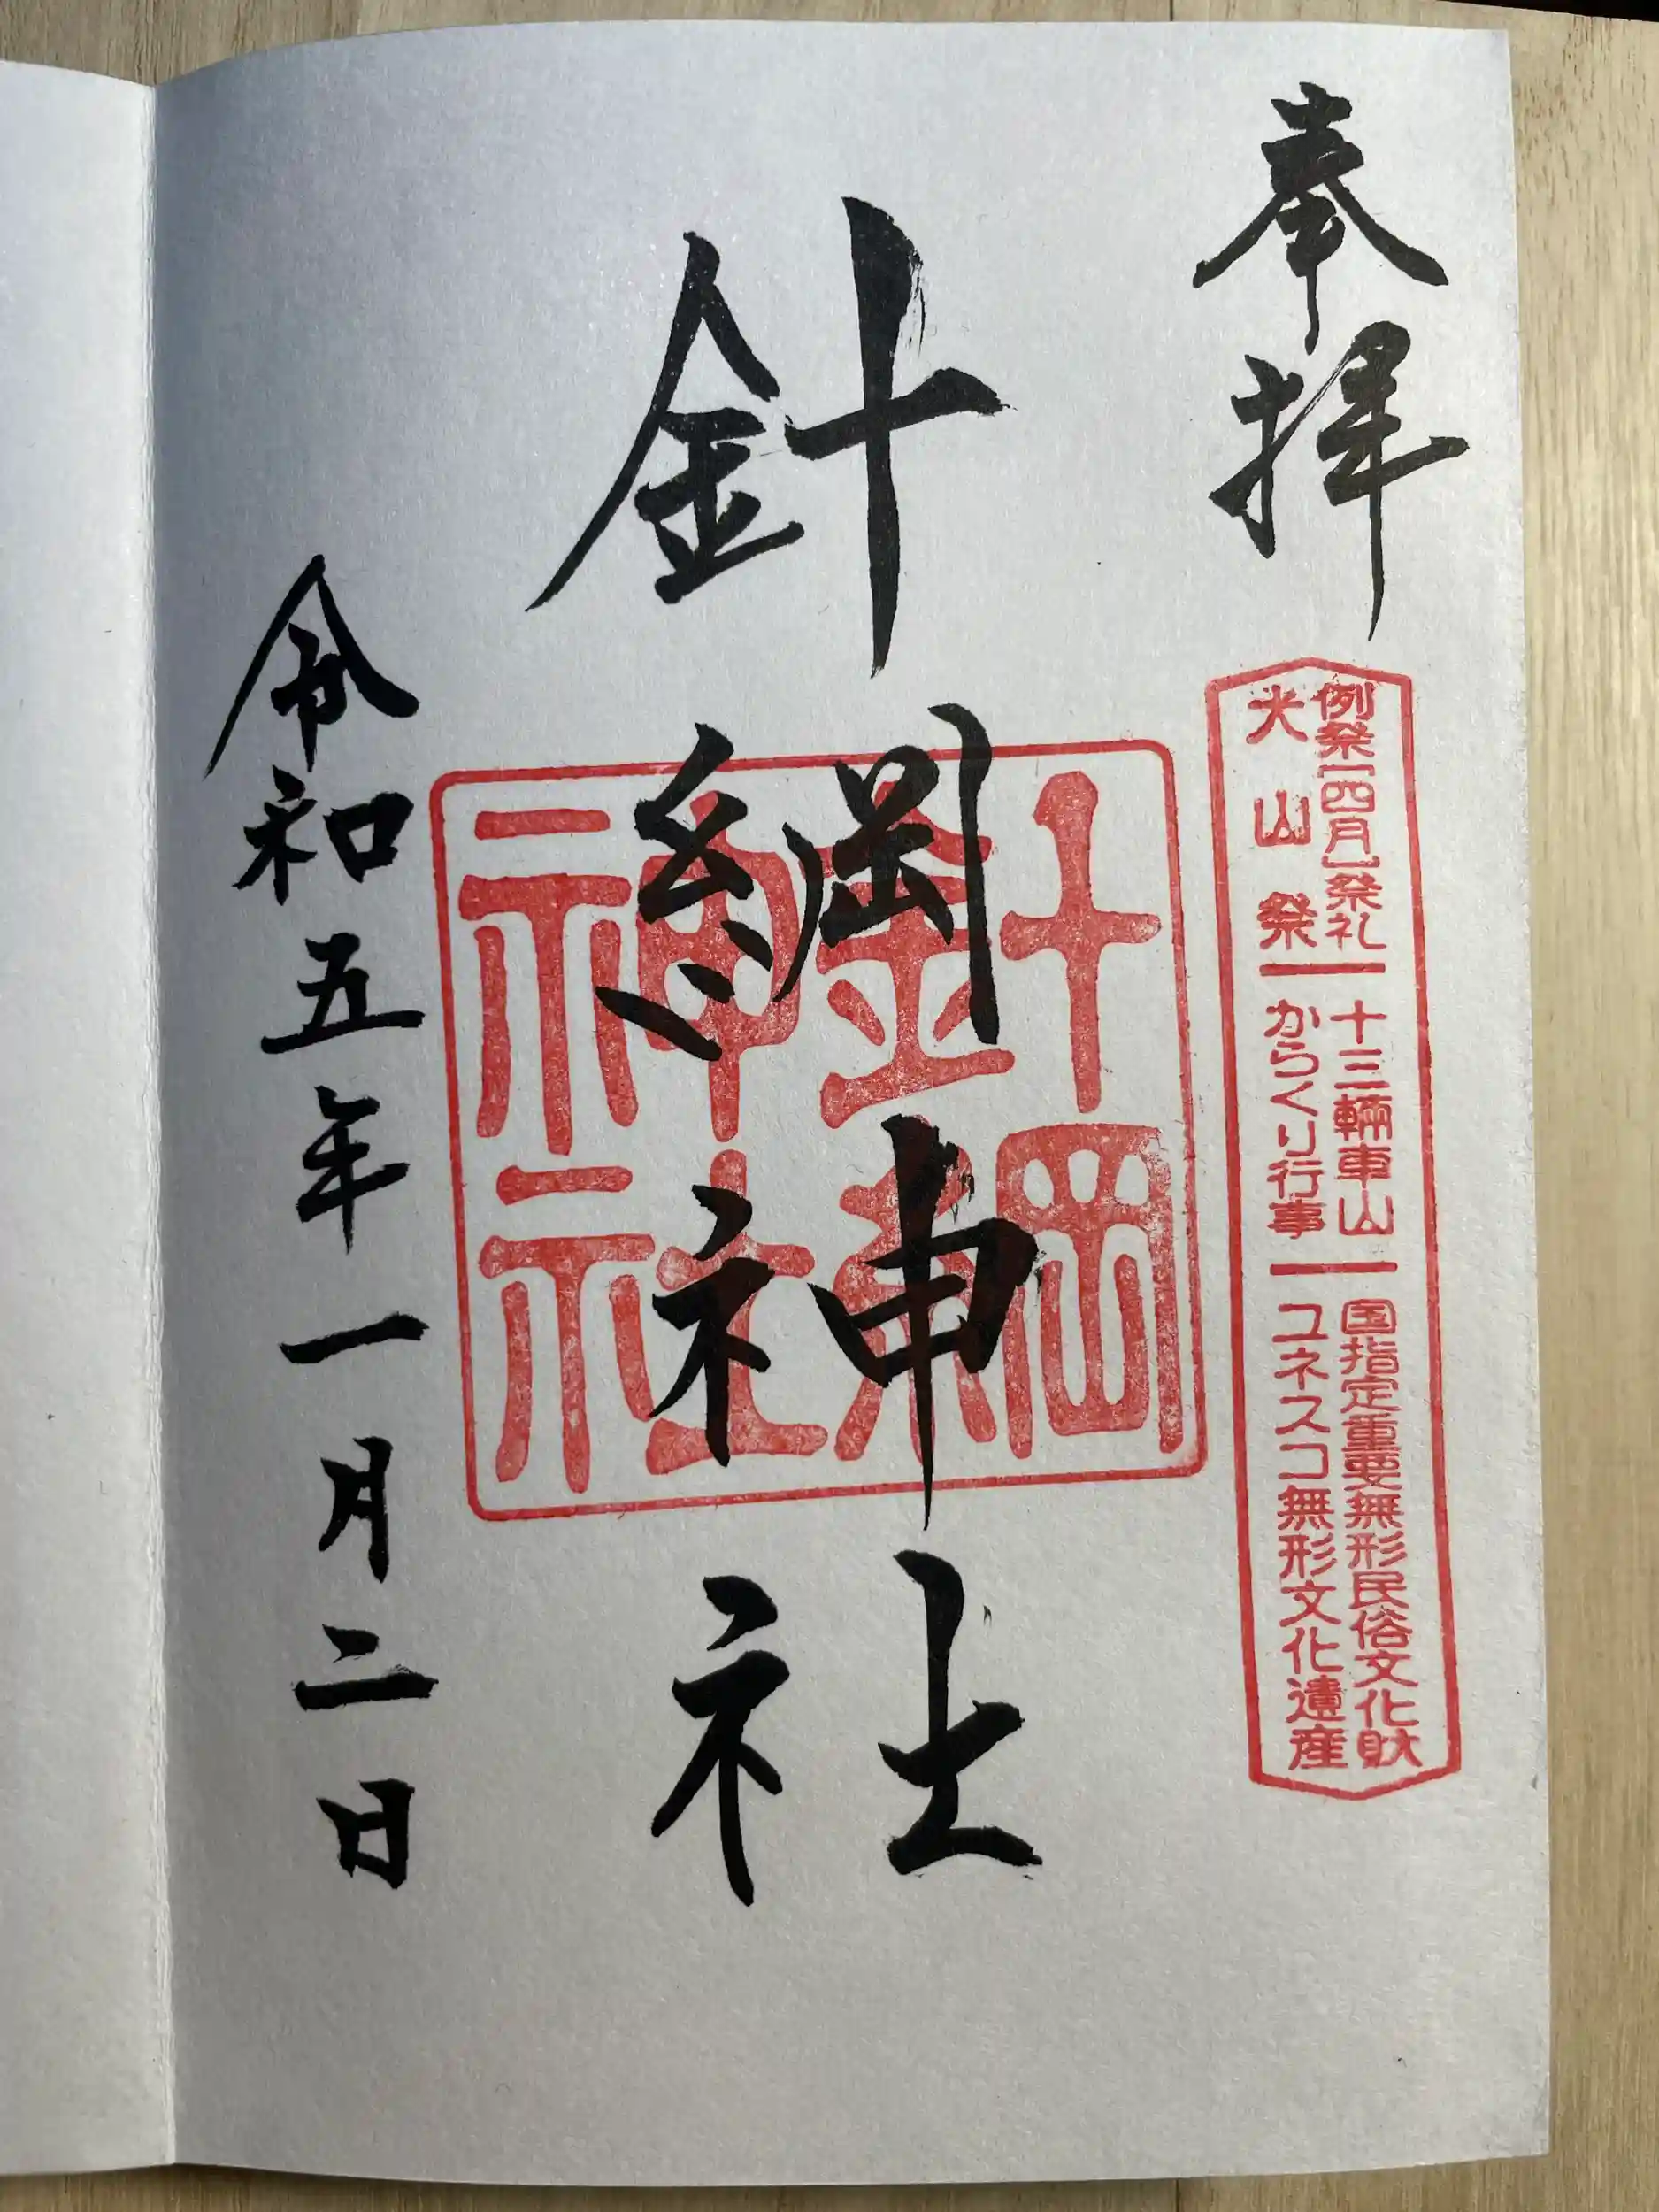 奉拝
例祭[四月]祭礼
犬山祭
十三輛車山
からくり行事
国指定重要無形民俗文化財
ユネスコ無形文化遺産
針綱神社
針綱神社
令和五年一月二日